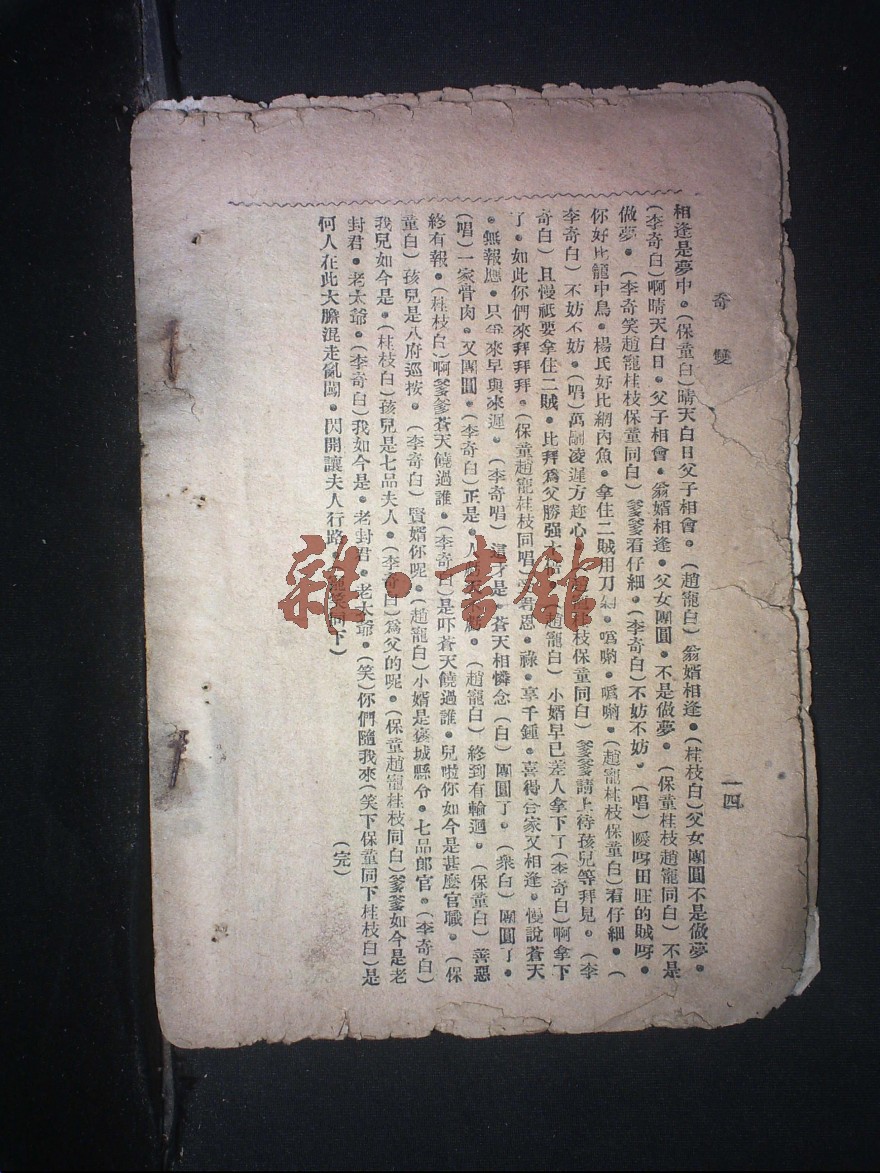 奇雙
一四
相逢是夢中。(保童白)晴天白日父子相會。(趙寵白)翁婿相逢。(桂枝白)父女團圓不是做夢。
(李奇白)啊晴天白日。父子相會。翁婿相逢。父女團圓。不是做夢。(保童桂枝趙寵同白)不是
做夢。(李奇笑趙寵桂枝保童同白)爹爹看仔細。(李奇白)不妨不妨。(唱)噯呀田旺的賊呀。
你好比籠中鳥。楊氏好比網內魚。拿住二賊用刀。噅喲。噅喲。(趙寵桂枝保童白)看仔細。(
李奇白)不妨不妨。(唱)萬剮凌遲方趁心。桂枝保童同白)爹爹請上待孩兒等拜見。(李
奇白)且慢祇要拿住二賊。比拜爲父勝强。(趙寵白)小婿早已差人拿下了(李奇白)啊拿下
了。如此你們來拜拜拜。(保童趙寵桂枝同唱)君恩。祿。享千鍾。喜得合家又相逢。慢說蒼天
。無報應。只爭來早與來遲。(李奇唱)這才是。蒼天相憐念(白)團圓了。(衆白)團圓了。
(唱)一家骨肉。又團圓。(李奇白)正是。人。(趙寵白)終到有輪迴。(保童白)善惡
終有報。(桂枝白)啊爹爹蒼天饒過誰。(李奇白)是吓蒼天饒過誰。兒啦你如今是甚麽官職。(保
童白)孩兒是八府巡按。(李奇白)賢婿你呢。(趙寵白)小婿是褒城縣令。七品郎官。(李奇白)
我兒如今是。(桂枝白)孩兒是七品夫人。(李奇白)爲父的呢。(保童趙寵桂枝同白)爹爹如今是老
封君。老太爺。(李奇白)我如今是。老封君。老太爺。(笑)你們隨我來(笑下保童同下桂枝白)是
何人在此大膽混走亂闖。閃開讓夫人行路。同下)
(完)
雜·書館